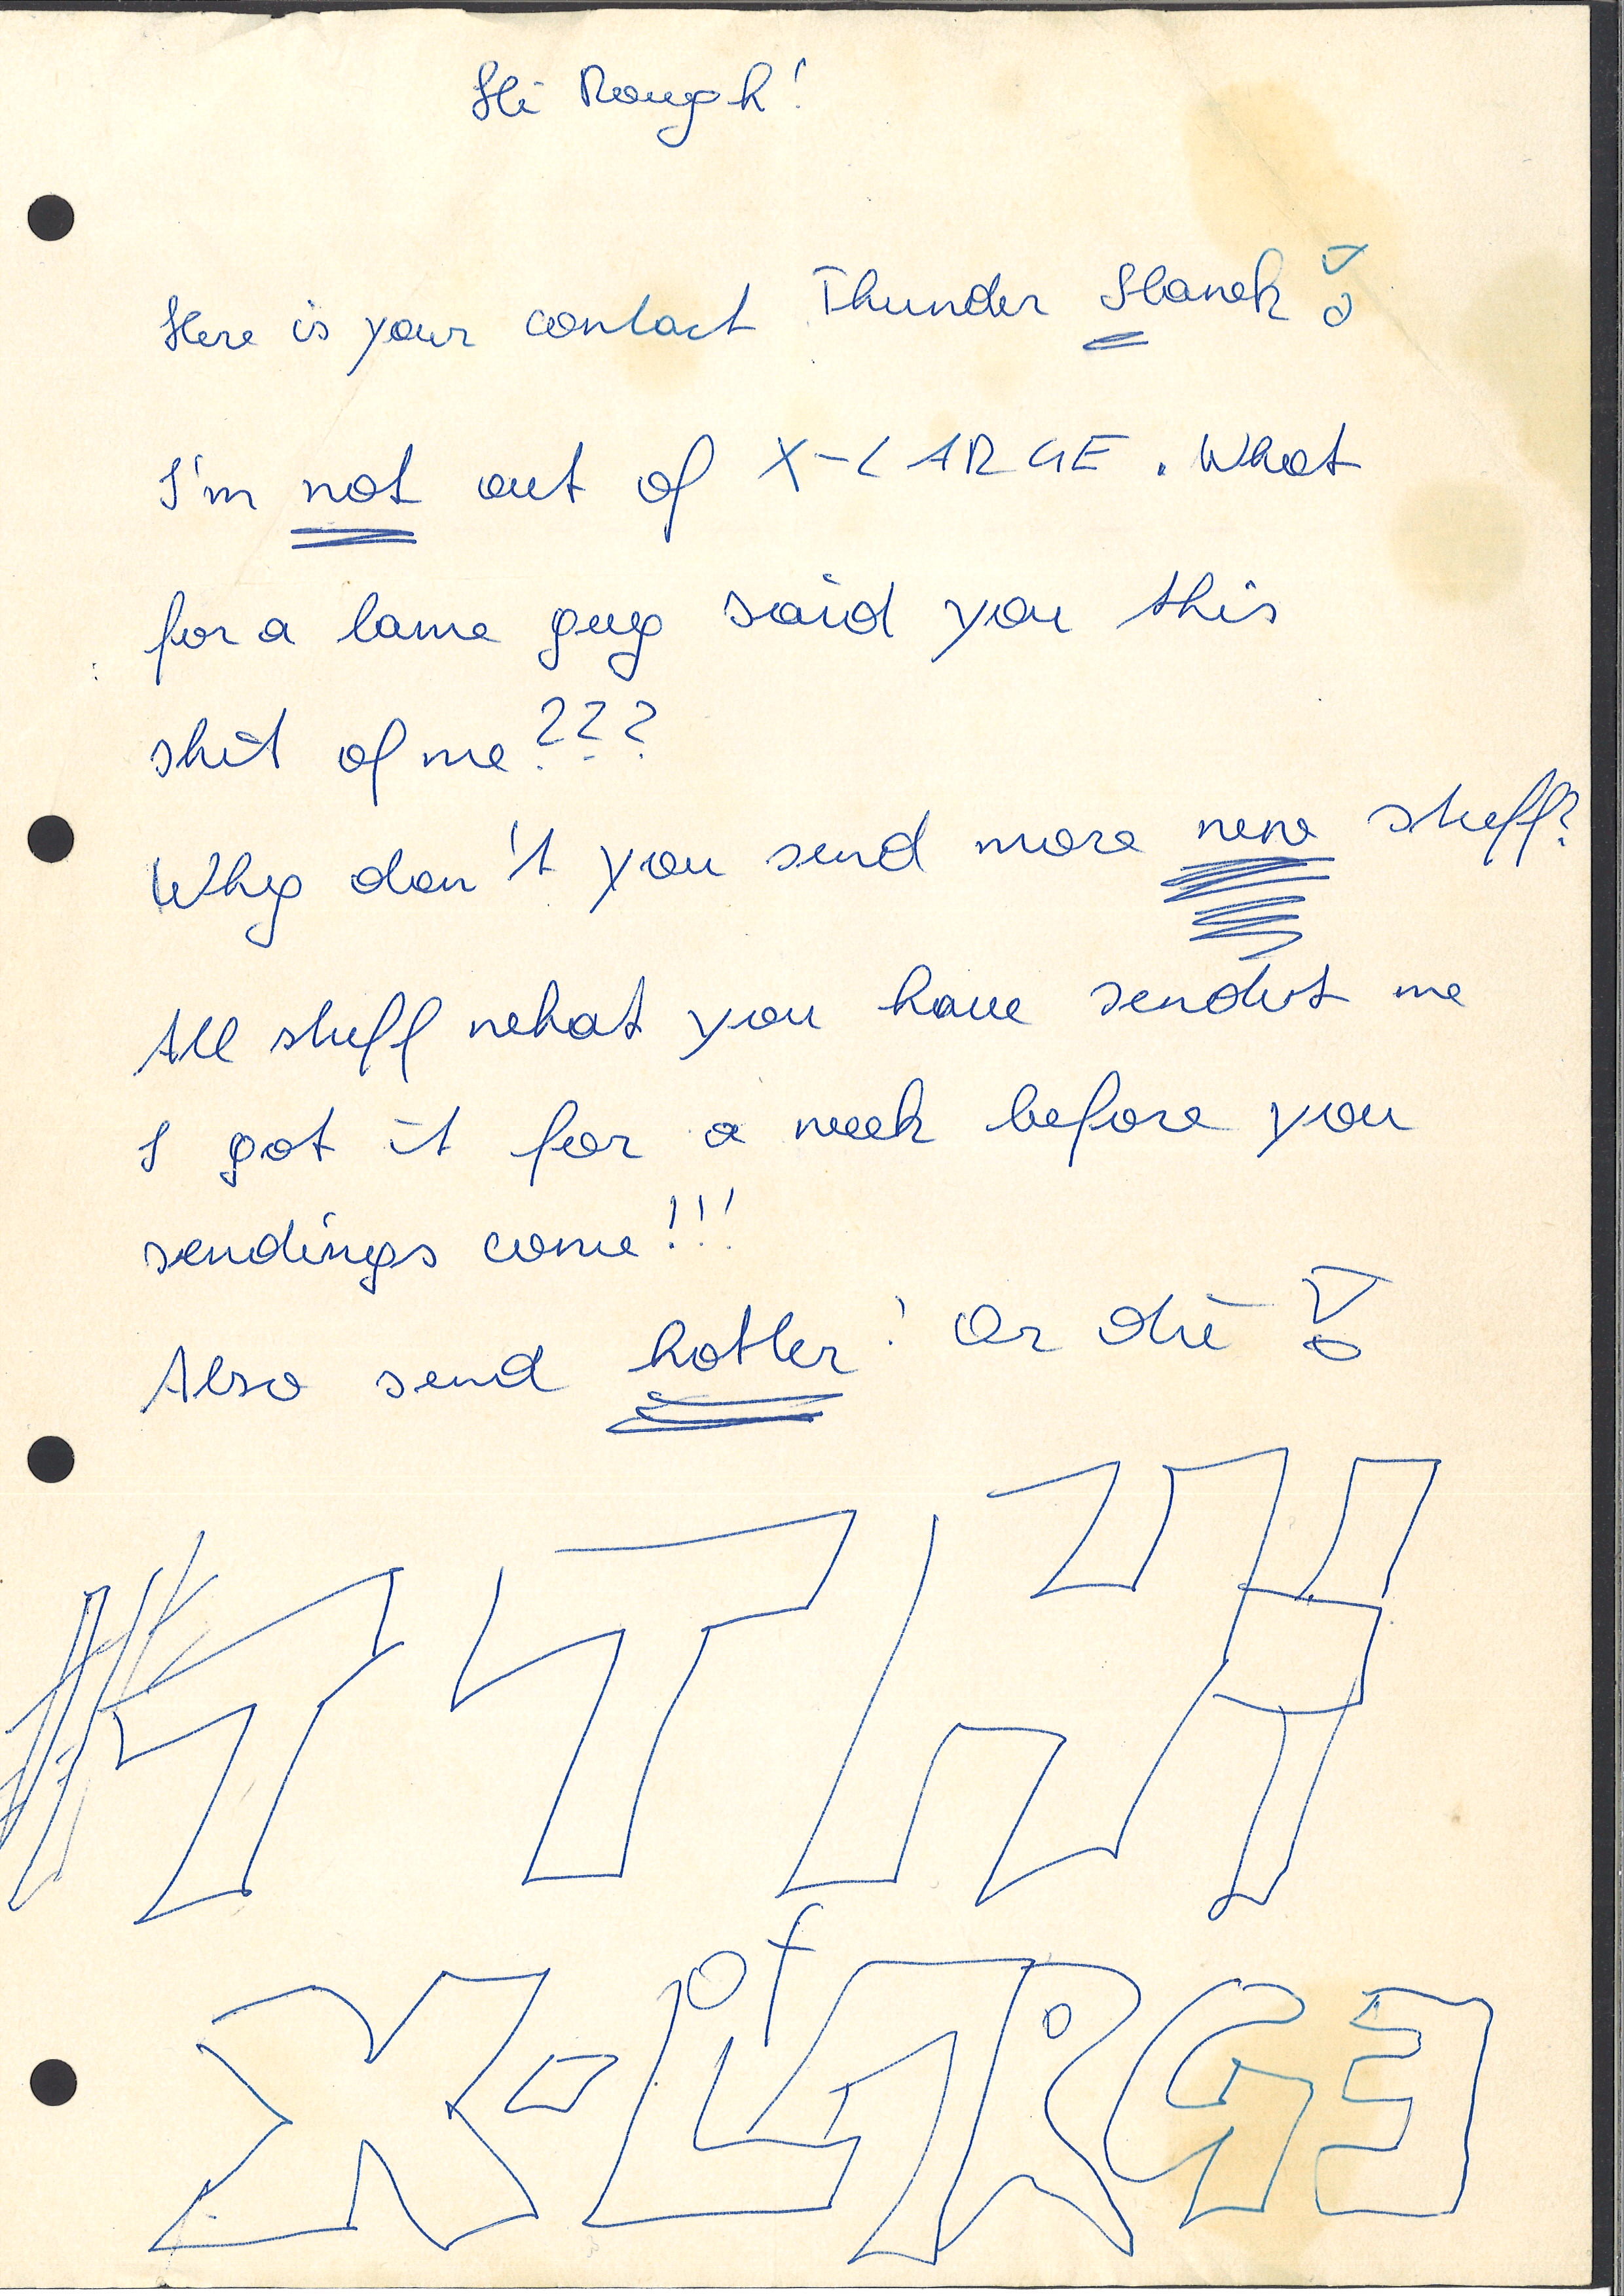 Hi Rough!
Here is your contact Thunder Hawk!
I'm not out of X-LARGE. What
for a lame guy said you this
shit of me???
Why don't you send more new stuff?
All stuff what you have sendet me
I got it for a week before you
sendings come!!!
Also send hotter! Or die!
of
X-LARGE